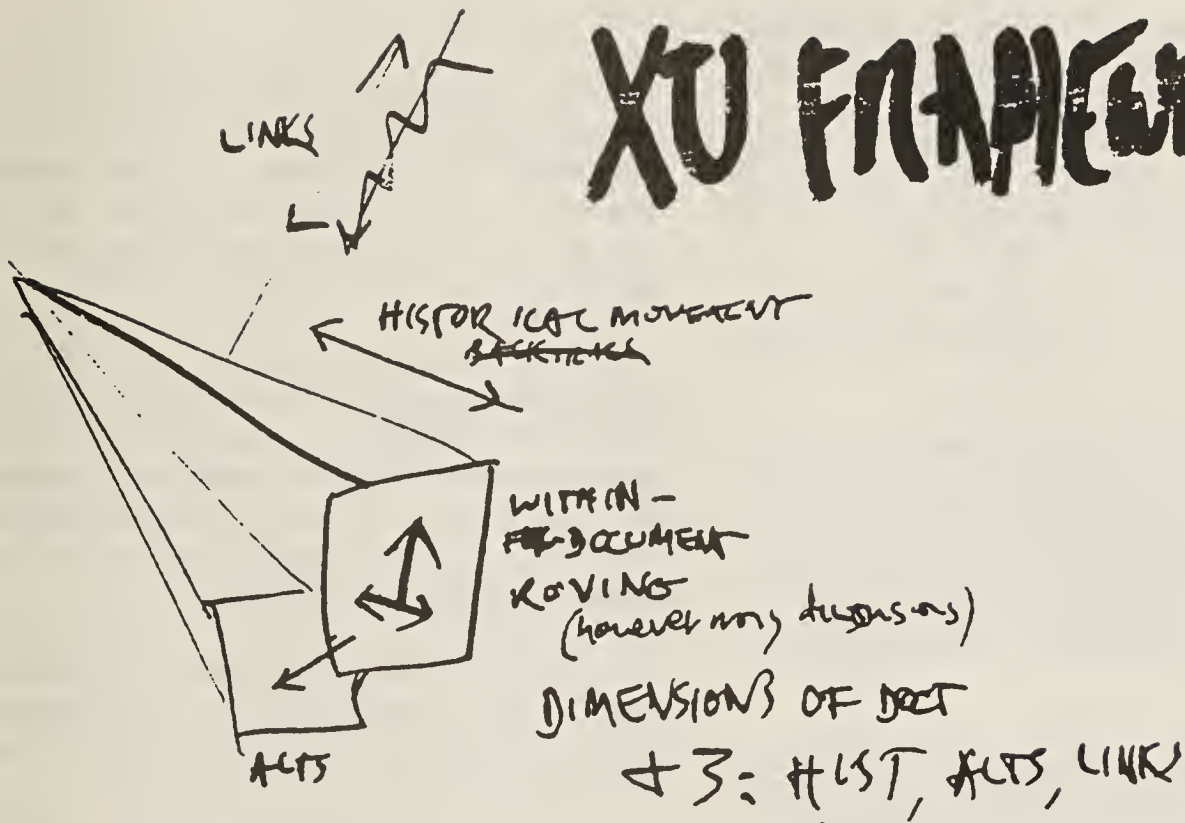 XU FRAMEW
LINKS
HISTORICAL MOVEMENT
WITHIN-
DOCUMENT
ROVING
(however many dimensions)
DIMENSIONS OF DOCT
+3: HIST, ALTS, LINKS
ALTS